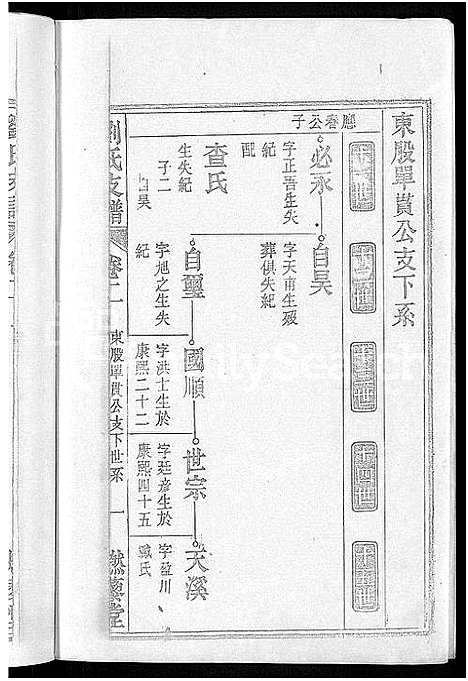 東股單貫公支下系
應春公子
必永
字正吾生失
紀
配
查氏
生失紀
子二
自昊
自昊
字天甫生殁
葬俱失紀
自璽
字旭之生失
紀
國順
字洪士生於
康熙二十二
世宗
字廷彥生於
康熙四十五
天溪
字盈川
戴氏
劉氏支譜
卷二
東股單貫公支下世系
一